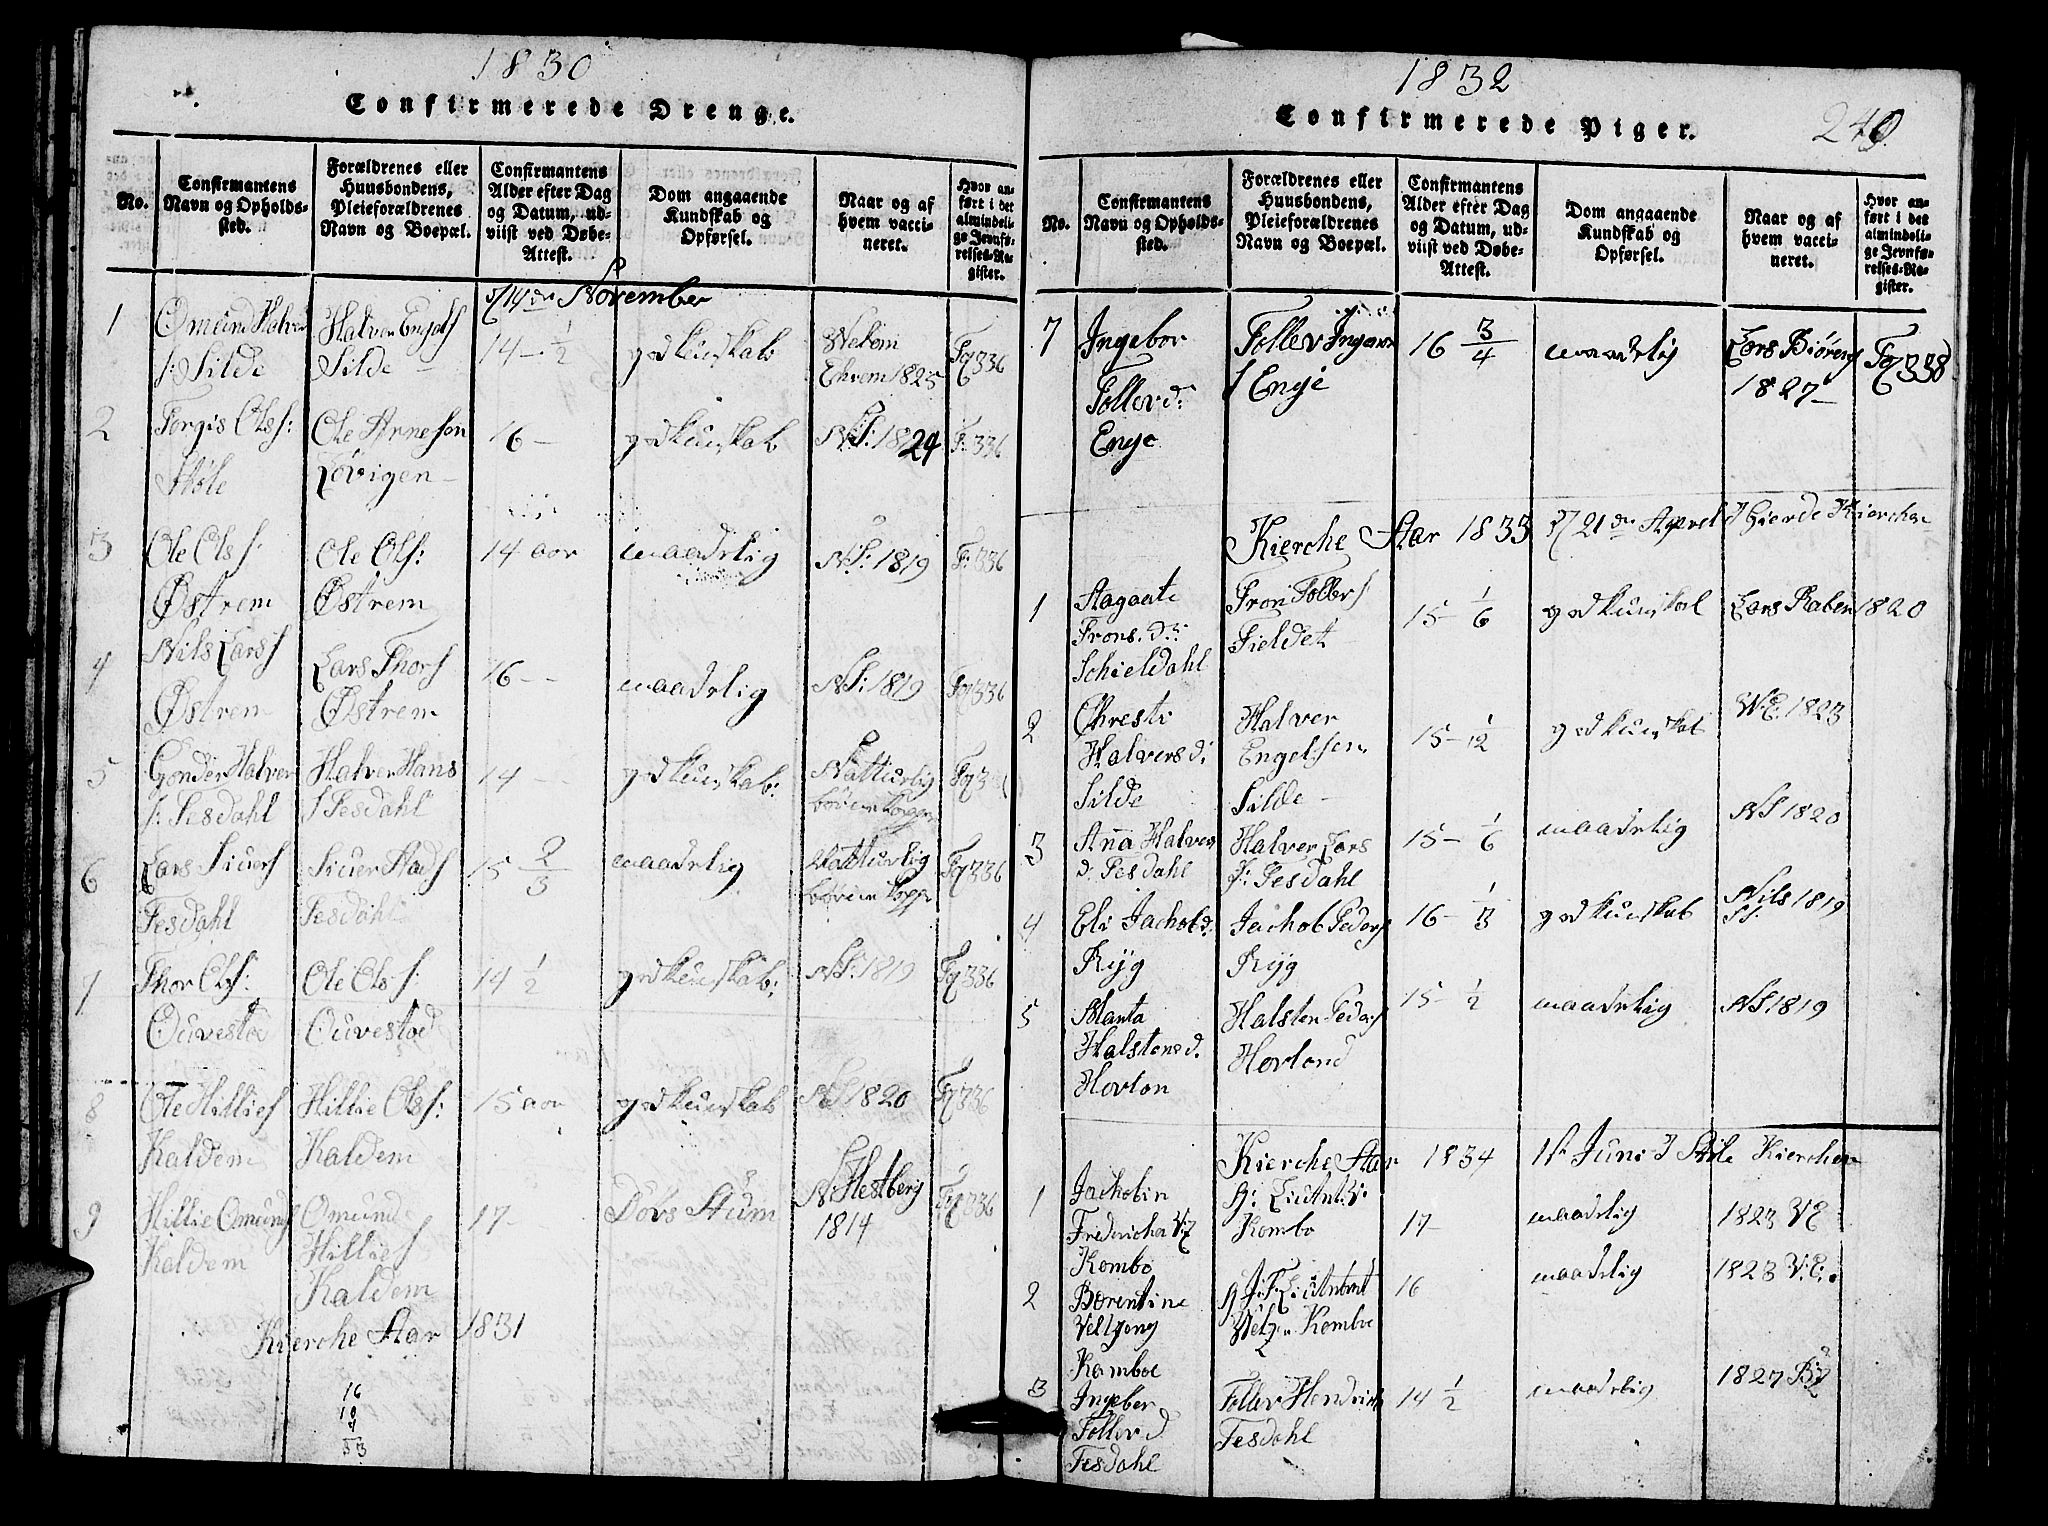 1830
Confirmerede Drenge.
No.
Confirmantens Navn og Opholdssted.
Forældrenes eller Huusbondens, Pleieforældrenes Navn og Boepæl.
Confirmantens Alder efter Dag og Datum, udviist ved Døbe-Attest.
Dom angaaende Kundskab og Opførsel.
Naar og af hvem vaccineret.
Hvor anført i det almindelige Jevnførelses-Register.
14de November
1 Omund Halvers: Silde
Halver Engels Silde
14-1/2
godkunskab
1825
336
2 Torgis Ols: Støle
Ole Arneson Løvigen
16 -
godkunskab
NS: 1824
F: 336
3 Ole Ols: Østrem
Ole Ols: Østrem
14 aar
maadelig
NS: 1819
F: 336
4 Nils Lars Østrem
Lars Thors Østrem
16 - -
maadelig
NS: 1819
Fg 336
5 Gonder Halvers: Tesdahl
Halver Hans Tesdahl
14 - -
godkunskab:
Natturlig børnekopper
6 Lars Siurs Tesdahl
Siuer Mads Tesdahl
15 2/3
maadelig
Natturlig børnekopper
Fg 336
7 Thor Ols: Ouvestad
Ole Ols: Ouvestad
14 1/2
godkunskab:
NS: 1819
Fg 336
8 Ole Hillies Kaldem
Hillie Ols: Kaldem
15 aar
godkunskab
NS 1820
Fg 336
9 Hillie Omunds Kaldem
Omund Hillies Kaldem
17 -
Døvs Stum
N: Hestberg 1814
Fg 336
Kierche Aar 1831
16
10
7
33
1832
Confirmerede Piger.
240
No.
Confirmantens Navn og Opholdssted.
Forældrenes eller Huusbondens, Pleieforældrenes Navn og Boepæl.
Confirmantens Alder efter Dag og Datum, udviist ved Døbe-Attest.
Dom angaaende Kundskab og Opførsel.
Naar og af hvem vaccineret.
Hvor anført i det almindelige Jevnførelses-Register.
7 Ingebor Tollevd: Enge
Tollev Engje
16 3/4
maadelig
Lars 1827 -
Fg 338
Kierche Aar 1833 21de Aprel I Gierde Kierchen
1 Aagaate Tronsd: Schieldahl
Tron Tollevs Fieldet
15 - 1/6
godkunskab
Lars Raben 1820
2 Chresti Halversd: Silde
Halver Engelsen Silde -
15 - 1/12
godkunskab
W.E. 1823
3 Anna Halversd: Tesdahl
Halver Lars: Tesdahl
15 - 1/6
maadelig
NS 1820
4 Eli Jachobd: Ryg
Jachob Peders Ryg
16 - 1/3
godkunskab
Nils S: 1819
5 Marita Halstensd. Hovlan
Halsten Peders Hovland
15 - 1/2
maadelig
NS 1819
Kierche Aar 1834 1st Juni I Støle Kierchen
1 Jachobin Fredericha Kombo
H: Lieutn: Kombo
17 -
maadelig
1823 VE
2 Berentine Kamboe
Kombo
16
maadelig
1823 V.E.
3 Ingeber Tollevd Tesdahl
Tollev Hendrichs Tesdahl
14 1/2
maadelig
1827